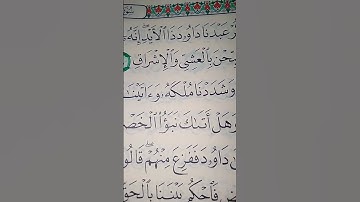 سُو
عَبْدَنَا دَاوُۥدَ ذَا ٱلْأَيْدِ إِنَّهُۥ
بِّحْنَ بِٱلْعَشِىِّ وَٱلْإِشْرَاقِ
وَشَدَدْنَا مُلْكَهُۥ وَءَاتَيْنَٰ
وَهَلْ أَتَىٰكَ نَبَؤُا۟ ٱلْخَصْ
دَاوُۥدَ فَفَزِعَ مِنْهُمْ قَالُو
ضٍ فَٱحْكُم بَيْنَنَا بِٱلْحَقِّ